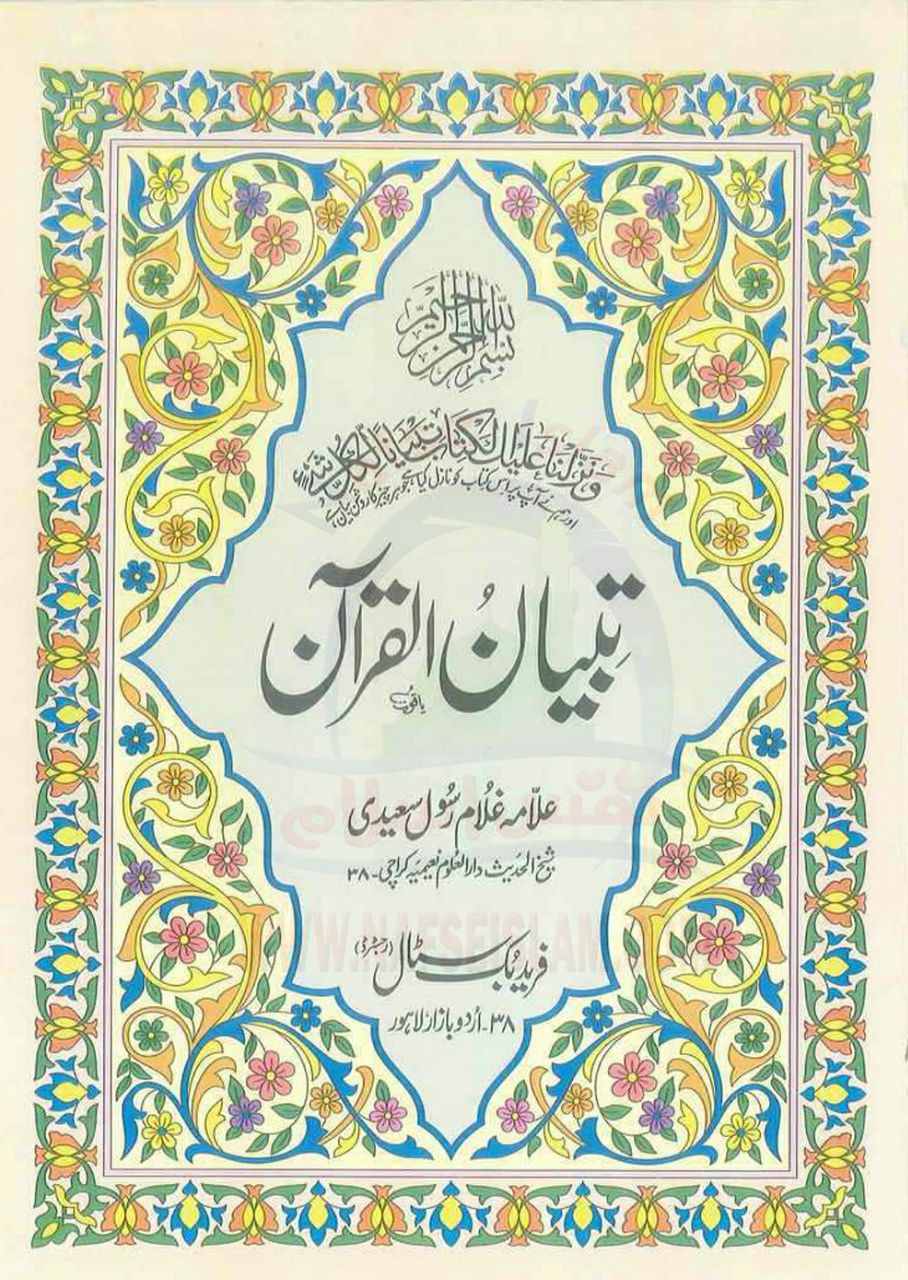 بسم الله الرحمن الرحيم
ونزلنا عليك الكتاب تبيانا لكل شيء
اور ہم نے آپ پر اس کتاب کو نازل کیا ہے جو ہر چیز کا روشن بیان ہے
تِبیانُ القرآن
یاقوت
علامہ غلام رسول سعیدی
شیخ الحدیث دارالعلوم نعیمیہ کراچی۔۳۸
فرید بک سٹال (رجسٹرڈ)
۳۸۔اردو بازار لاہور
نفس اسلام
WWW.NAFSEISLAM.COM